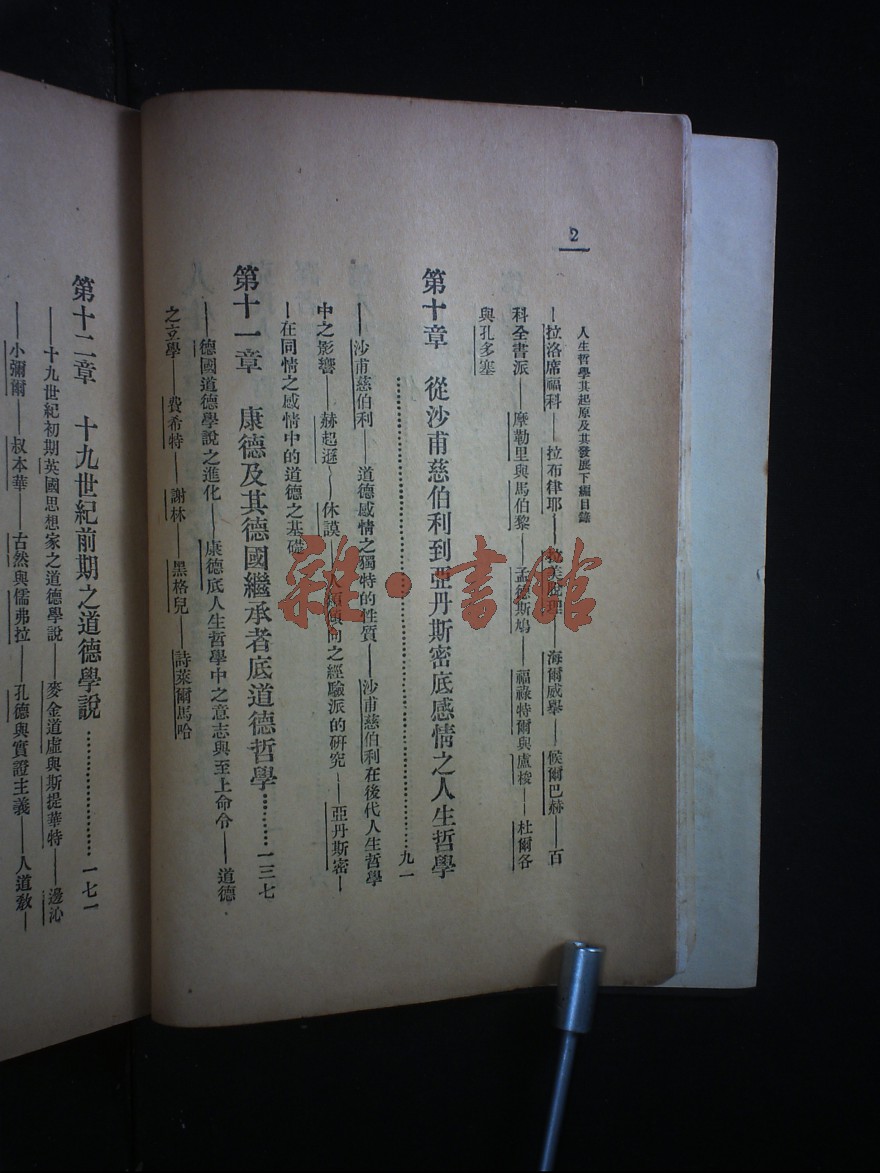 2
人生哲學其起原及其發展下編目錄
—拉洛席福科——拉布律耶——美理——海爾威舉——候爾巴赫——百
科全書派——摩勒里與馬伯黎——孟德斯鳩——福祿特爾與盧梭——杜爾各
與孔多塞
第十章 從沙甫慈伯利到亞丹斯密底感情之人生哲學
…………九一
——沙甫慈伯利——道德感情之獨特的性質——沙甫慈伯利在後代人生哲學
中之影響——赫起遜——休謨——人類傾向之經驗派的研究——亞丹斯密—
—在同情之感情中的道德之基礎
第十一章 康德及其德國繼承者底道德哲學…………一三七
——德國道德學說之進化——康德底人生哲學中之意志與至上命令——道德
之立學——費希特——謝林——黑格兒——詩萊爾馬哈
第十二章 十九世紀前期之道德學說…………一七一
——十九世紀初期英國思想家之道德學說——麥金道虛與斯提華特——邊沁
—小彌爾——叔本華——古然與儒弗拉——孔德與實證主義——人道教—
雜·書館